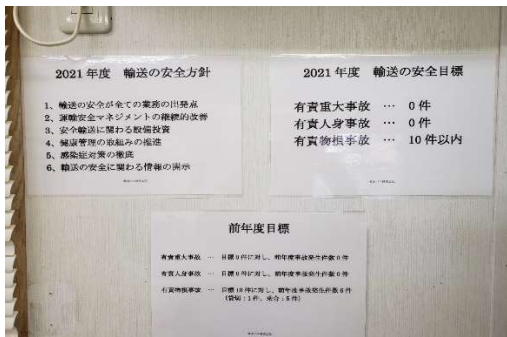 2021年度 輸送の安全方針
1、輸送の安全が全ての業務の出発点
2、運輸安全マネジメントの継続的改善
3、安全輸送に関わる設備投資
4、健康管理の取組みの推進
5、感染症対策の徹底
6、輸送の安全に関わる情報の開示
2021年度 輸送の安全目標
有責重大事故 … 0件
有責人身事故 … 0件
有責物損事故 … 10件以内
前年度目標
有責重大事故 … 目標0件に対し、前年度事故発生件数0件
有責人身事故 … 目標0件に対し、前年度事故発生件数0件
有責物損事故 … 目標10件に対し、前年度事故発生件数6件
(貸切：1件、乗合：5件)